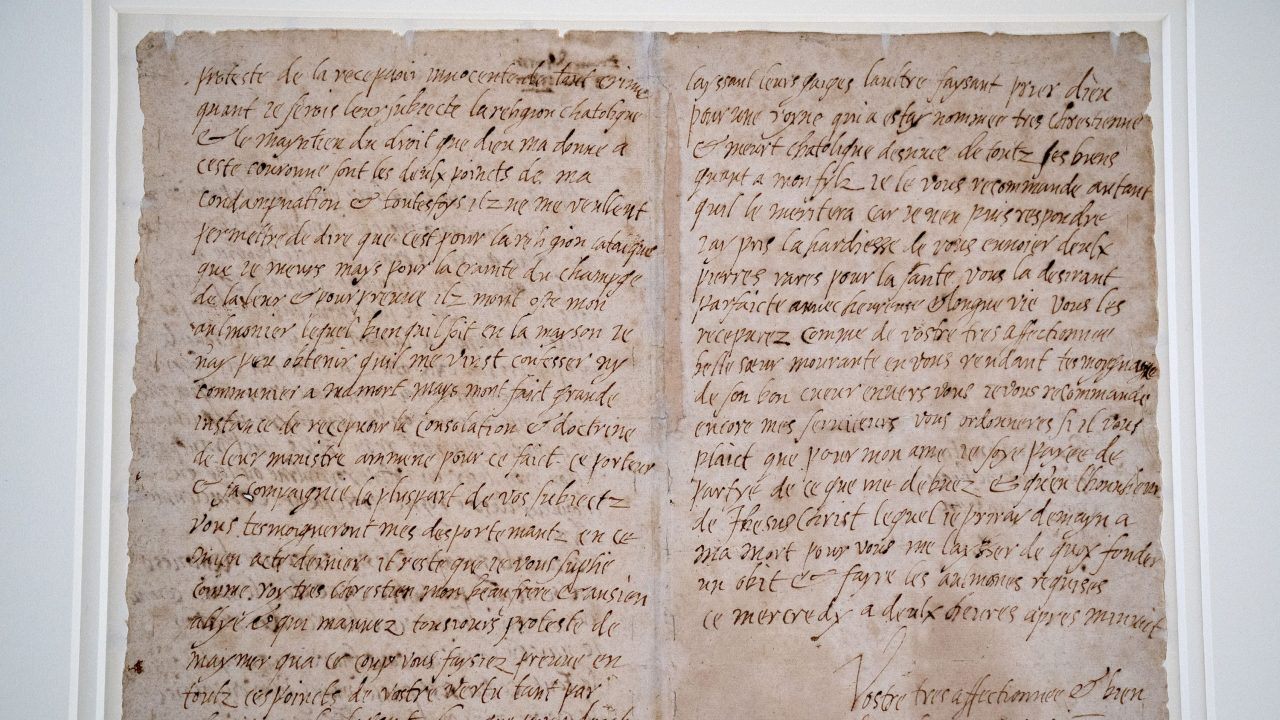 proteste de la recepvoir innocente de tout crime
quant je serois leur subjecte la religion chatolique
& le mayntien du droit que dieu ma donne a
ceste couronne sont les deulx poincts de ma
condampnation & toutesfoys ilz ne me veullent
permettre de dire que cest pour la religion catolique
que je meurs mays pour la crainte du champge
de la leur & pour preuve ilz mont oste mon
aulmonier lequel bien quil soit en la mayson je
nay peu obtenir quil me vinst confesser ny
communier a ma mort mays mont fait grande
instance de recepvoir la consolation & doctrine
de leur ministre ammene pour ce faict ce porteur
& sa compaignie la pluspart de vos subjectz
vous tesmoigneront mes desportemantz en ce
mien acte dernier il reste que je vous suplie
comme roy tres chrestien mon beau frere & ansien
allye & qui mavvez tousjours proteste de
maymer qua ce coup vous faysiez preuve en
toutz ces poincts de vostre vertu tant par
layssant leurs gaiges laultre faysant prier dieu
pour une royne qui a estay nommee tres chrestienne
& meurt chatolique desnuee de toutz ses biens
quant a mon fylz je le vous recommande autant
quil le meritera car je nen puis respondre
jay pris la hardiesse de vous envoier deulx
pierres rares pour la sante vous la desirant
parfaicte avvec heureuse & longue vie vous les
recepvrez comme de vostre tres affectionnee
belle soeur mourante en vous rendant tesmoygnage
de son bon cueur envers vous je vous recommande
encore mes serviteurs vous ordonneres si il vous
plaict que pour mon ame je soye payee de
partye de ce que me debvez & quen lhonneur
de Jhesus Christ lequel je priray demayn a
ma mort pour vous me laysser de quoy fonder
un obit & fayre les aulmones requises
ce mercredy a deulx heures apres minuit
Vostre tres affectionnee & bien